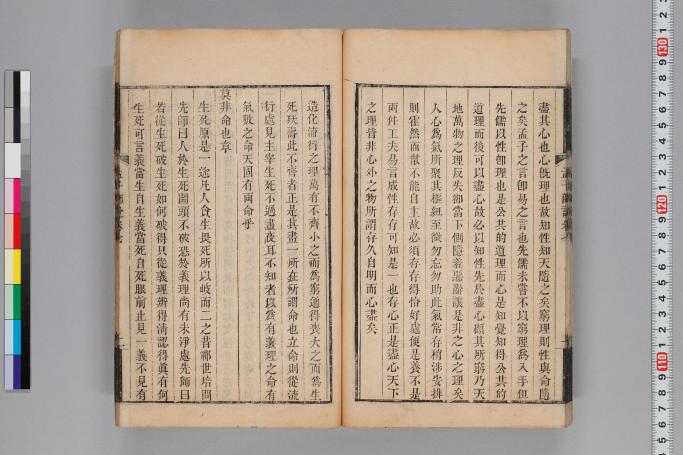 盡其心也心旣理也故知性知天隨之矣窮理則性與命隨
之矣孟子之言卽易之言也先儒未嘗不以窮理爲入手但
先儒以性卽理也是公共的道理而心是知覺知得公共的
道理而後可以盡心故必以知性先於盡心顧其所窮乃天
地萬物之理反失卻當下惻隱羞惡辭讓是非之心之理矣
人心爲氣所聚其樞紐至微勿忘勿助此氣常存稍涉安排
則霍然而散不能自主故必須存存得恰好處便是養不是
兩件工夫易言成性存存可知是一也存心正是盡心天下
之理皆非心外之物所謂存久自明而心盡矣
造化流行之理萬有不齊小之而爲窮通得喪大之而爲生
死殀壽此不齊者正是其畫一所在所謂命也立命則從流
行處見主宰生死不過晝夜耳不知者以爲有義理之命有
氣數之命天固有兩命乎
莫非命也章
生死原是一途凡人貪生畏死所以岐而二之昔鄒世培問
先師曰人於生死關頭不破恐於義理尚有未淨處先師曰
若從生死破生死如何破得只從義理辨得淸認得眞有何
生死可言義當生自生義當死自死眼前止見一義不見有